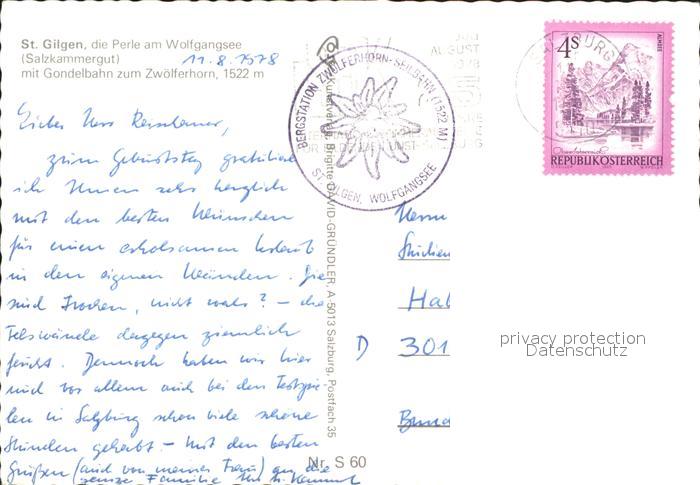 St. Gilgen, die Perle am Wolfgangsee
(Salzkammergut) 11.8.1978
mit Gondelbahn zum Zwölferhorn, 1522 m
Lieber Herr
zum Geburtstag gratuliere
ich Ihnen sehr herzlich
mit den besten Wünschen
für einen erholsamen Urlaub
in den eigenen Wänden. Sie
sind trocken, nicht wahr? – die
Felswände dagegen ziemlich
feucht. Dennoch haben wir hier
und vor allem auch bei den Festspie-
len in Salzburg schon viele schöne
Stunden gehabt. – Mit den besten
Grüßen (auch von meiner Frau) an die
ganze Familie Ihr
BERGSTATION ZWÖLFERHORN-SEILBAHN (1522 M)
ST. GILGEN, WOLFGANGSEE
AUGUST
SALZBURG
Kunstverlag Brigitte DAVID-GRÜNDLER, A-5013 Salzburg, Postfach 35
Nr. S 60
4S
ALMSEE
REPUBLIK ÖSTERREICH
Herrn
Studien
Hal
D 301
privacy protection
Datenschutz